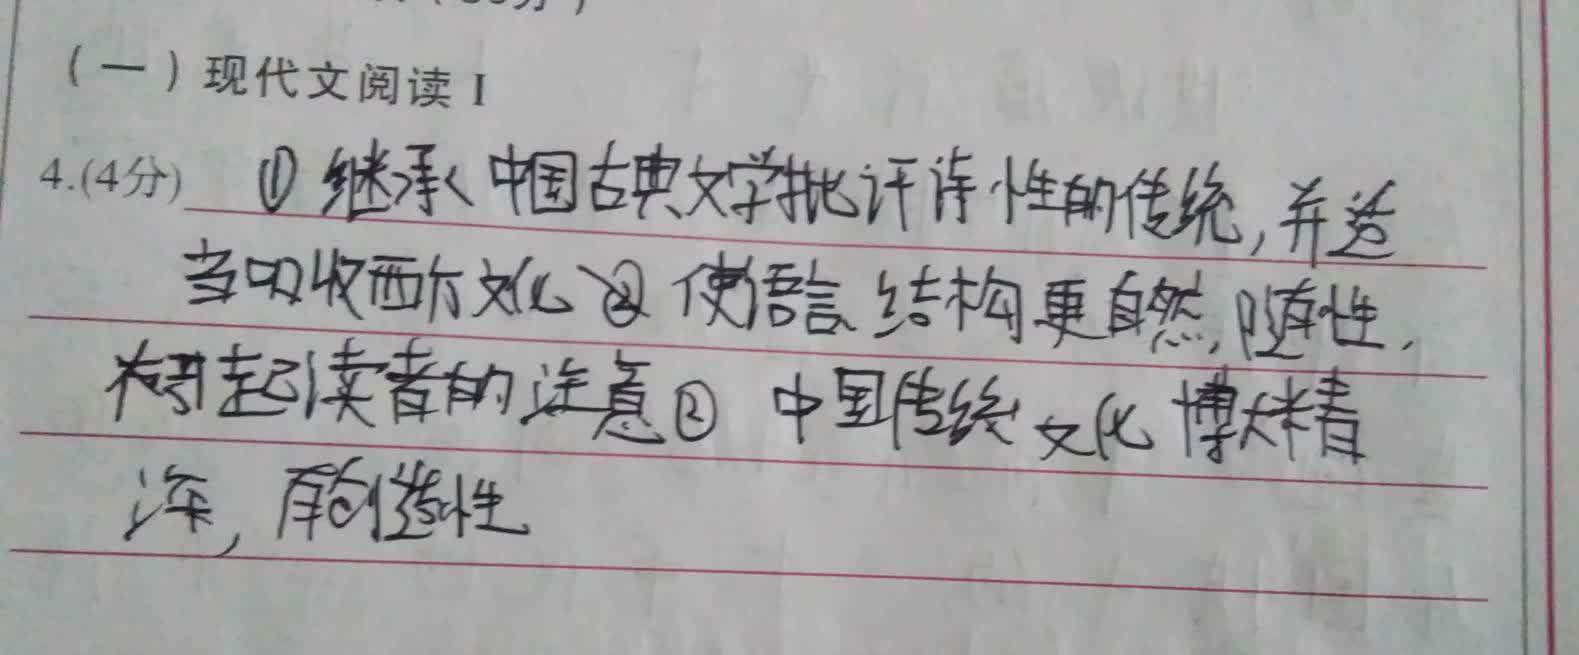 （一）现代文阅读 I
4.(4分) ①继承中国古典文学批评诗性的传统,并适
当吸收西方文化 ② 使语言结构更自然,随性,
引起读者的注意② 中国传统文化博大精
深,有创造性